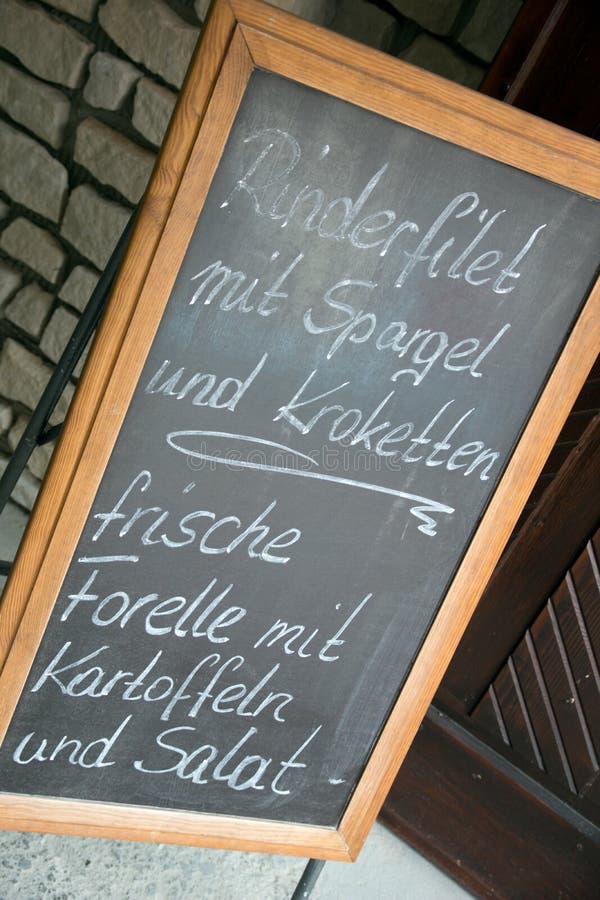 Rinderfilet
mit Spargel
und Kroketten
frische
Forelle mit
Kartoffeln
und Salat -